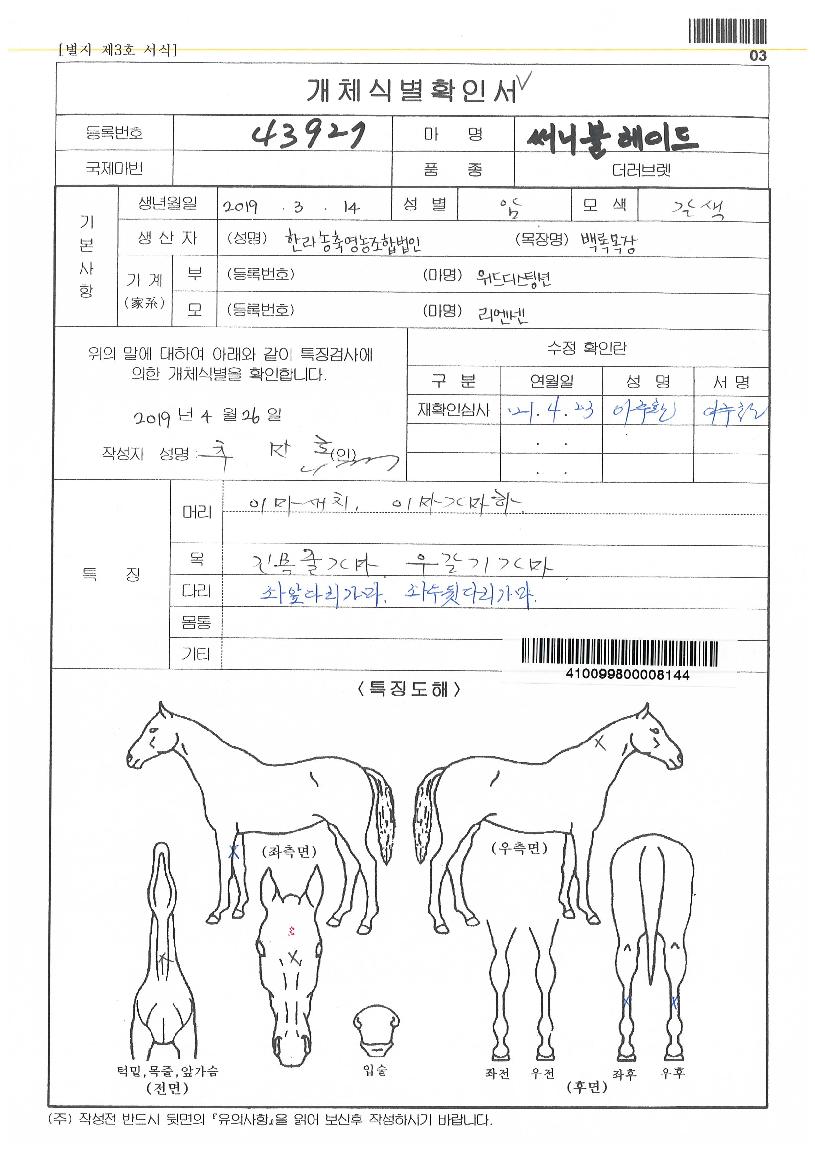 [별지 제3호 서식]
03
개체식별확인서
등록번호 43927 마 명 써니블헤이드
국제마번 품 종 더러브렛
기본사항
생년월일 2019 . 3 . 14 성 별 암 모 색 갈색
생 산 자 (성명) 한라농축영농조합법인 (목장명) 백록목장
가 계 (家系) 부 (등록번호) (마명) 위드디스팅션
모 (등록번호) (마명) 리멘넨
위의 말에 대하여 아래와 같이 특징검사에
의한 개체식별을 확인합니다.
2019 년 4 월 26 일
작성자 성명 : (인)
수정 확인란
구 분 연월일 성 명 서 명
재확인심사 '21. 4. 23
. .
. .
특 징
머리 이마새치, 이마가마하
목 진목줄가마 우갈기가마
다리 좌앞다리가마. 좌우뒷다리가마.
몸통
기타
410099800008144
<특징도해>
(좌측면) (우측면)
턱밑,목줄,앞가슴
(전면)
입술
좌전 우전 좌후 우후
(후면)
(주) 작성전 반드시 뒷면의 『유의사항』을 읽어 보신후 작성하시기 바랍니다.